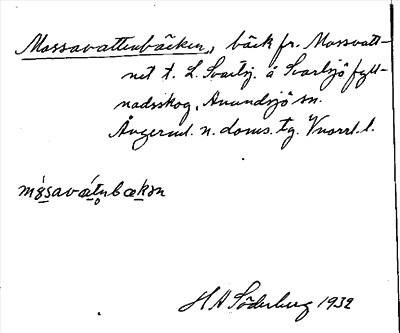 Mossavattenbäcken, bäck fr. Mossvatt-
net t. L. Svartsj. å Svartsjö fyll-
nadsskog, Anundsjö sn.
Ångerml. n. doms. tg. Vnorrl. l.
mo̱savȧ̱tṇbæ̱kən
H A Söderberg 1932